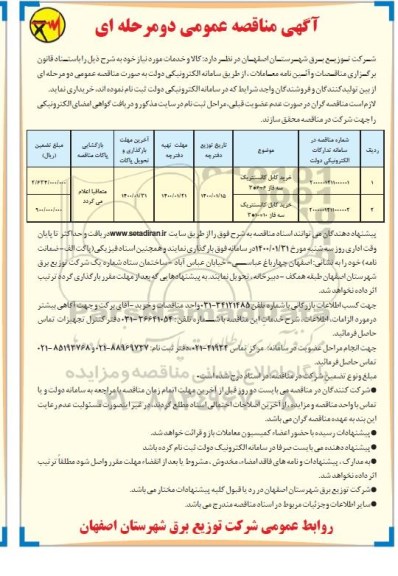 آگهی مناقصه عمومی دومرحله ای
شرکت توزیع برق شهرستان اصفهان در نظر دارد: کالا و خدمات مورد نیاز خود به شرح ذیل را باستناد قانون
برگزاری مناقصات و آئین نامه معاملات، از طریق سامانه الکترونیکی دولت به صورت مناقصه عمومی دو مرحله ای
از بین تولیدکنندگان و فروشندگان واجد شرایط که در سامانه الکترونیکی دولت ثبت نام نموده اند، خریداری نماید.
لازم است مناقصه گران در صورت عدم عضویت قبلی، مراحل ثبت نام در سایت مذکور و دریافت گواهی امضای الکترونیکی
را جهت شرکت در مناقصه محقق سازند.
ردیف شماره مناقصه در سامانه تدارکات الکترونیکی دولت موضوع تاریخ توزیع دفترچه مهلت تهیه دفترچه آخرین مهلت بارگذاری و تحویل پاکات بازگشایی پاکات مناقصه مبلغ تضمین (ریال)
۱ خرید کابل کانسنتریک سه فاز ۱۴۰۰/۰۱/۱۵ ۱۴۰۰/۰۱/۲۱ ۱۴۰۰/۰۱/۳۱ متعاقبا اعلام می گردد
۲ خرید کابل کانسنتریک سه فاز ۹۰۰/۰۰۰/۰۰۰
پیشنهاد دهندگان می توانند اسناد مناقصه به شرح فوق را از طریق سایت www.setadiran.ir دریافت و حداکثر تا پایان
وقت اداری روز سه شنبه مورخ ۱۴۰۰/۰۱/۳۱ در سامانه فوق بارگذاری نمایند و همچنین اسناد فیزیکی (پاکت الف - ضمانت
نامه) خود را به نشانی: اصفهان چهارباغ عباسی - خیابان عباس آباد - ساختمان ستاد شماره یک شرکت توزیع برق
شهرستان اصفهان طبقه همکف - دبیرخانه، تحویل نمایند. به پیشنهادهایی که بعد از مهلت مقرر بارگذاری گردد ترتیب
اثر داده نخواهد شد.
جهت کسب اطلاعات بازرگانی با شماره تلفن ۳۴۱۲۱۴۸۵-۰۳۱ واحد مناقصات و خرید - آقای برکت و جهت آگاهی بیشتر
در مورد الزامات، اطلاعات، شرح خدمات این مناقصه با شماره تلفن: ۳۶۶۴۱۰۵۴-۰۳۱ دفتر کنترل تجهیزات تماس
حاصل فرمائید.
جهت انجام مراحل عضویت در سامانه: مرکز تماس ۴۱۹۳۴-۰۲۱ دفتر ثبت نام: ۸۸۹۶۹۷۳۷-۰۲۱ و ۸۵۱۹۳۷۶۸-۰۲۱
تماس حاصل فرمائید.
مبلغ و نوع تضمین شرکت در مناقصه: در اسناد درج شده است.
● شرکت کنندگان در مناقصه می بایست دو روز قبل از آخرین مهلت اتمام زمان مناقصه با مراجعه به سامانه دولت و یا
تماس با واحد مناقصه و مزایده، از آخرین اصلاحات احتمالی اسناد مطلع گردند، در غیر اینصورت مسئولیت عدم رعایت
این بند به عهده مناقصه گران می باشد.
● پیشنهادات رسیده با حضور اعضاء کمیسیون معاملات باز و قرائت خواهد شد.
● پیشنهاد دهنده می بایست صرفا در سامانه الکترونیک دولت ثبت نام کرده باشد
● به مدارک، پیشنهادات و نامه های فاقد امضاء، مخدوش، مشروط یا بعد از انقضاء مهلت مقرر واصل شود مطلقاً ترتیب
اثر داده نخواهد شد.
● شرکت توزیع برق شهرستان اصفهان در رد یا قبول کلیه پیشنهادات مختار می باشد.
● سایر اطلاعات و جزئیات مربوط در اسناد مناقصه مندرج می باشد.
روابط عمومی شرکت توزیع برق شهرستان اصفهان